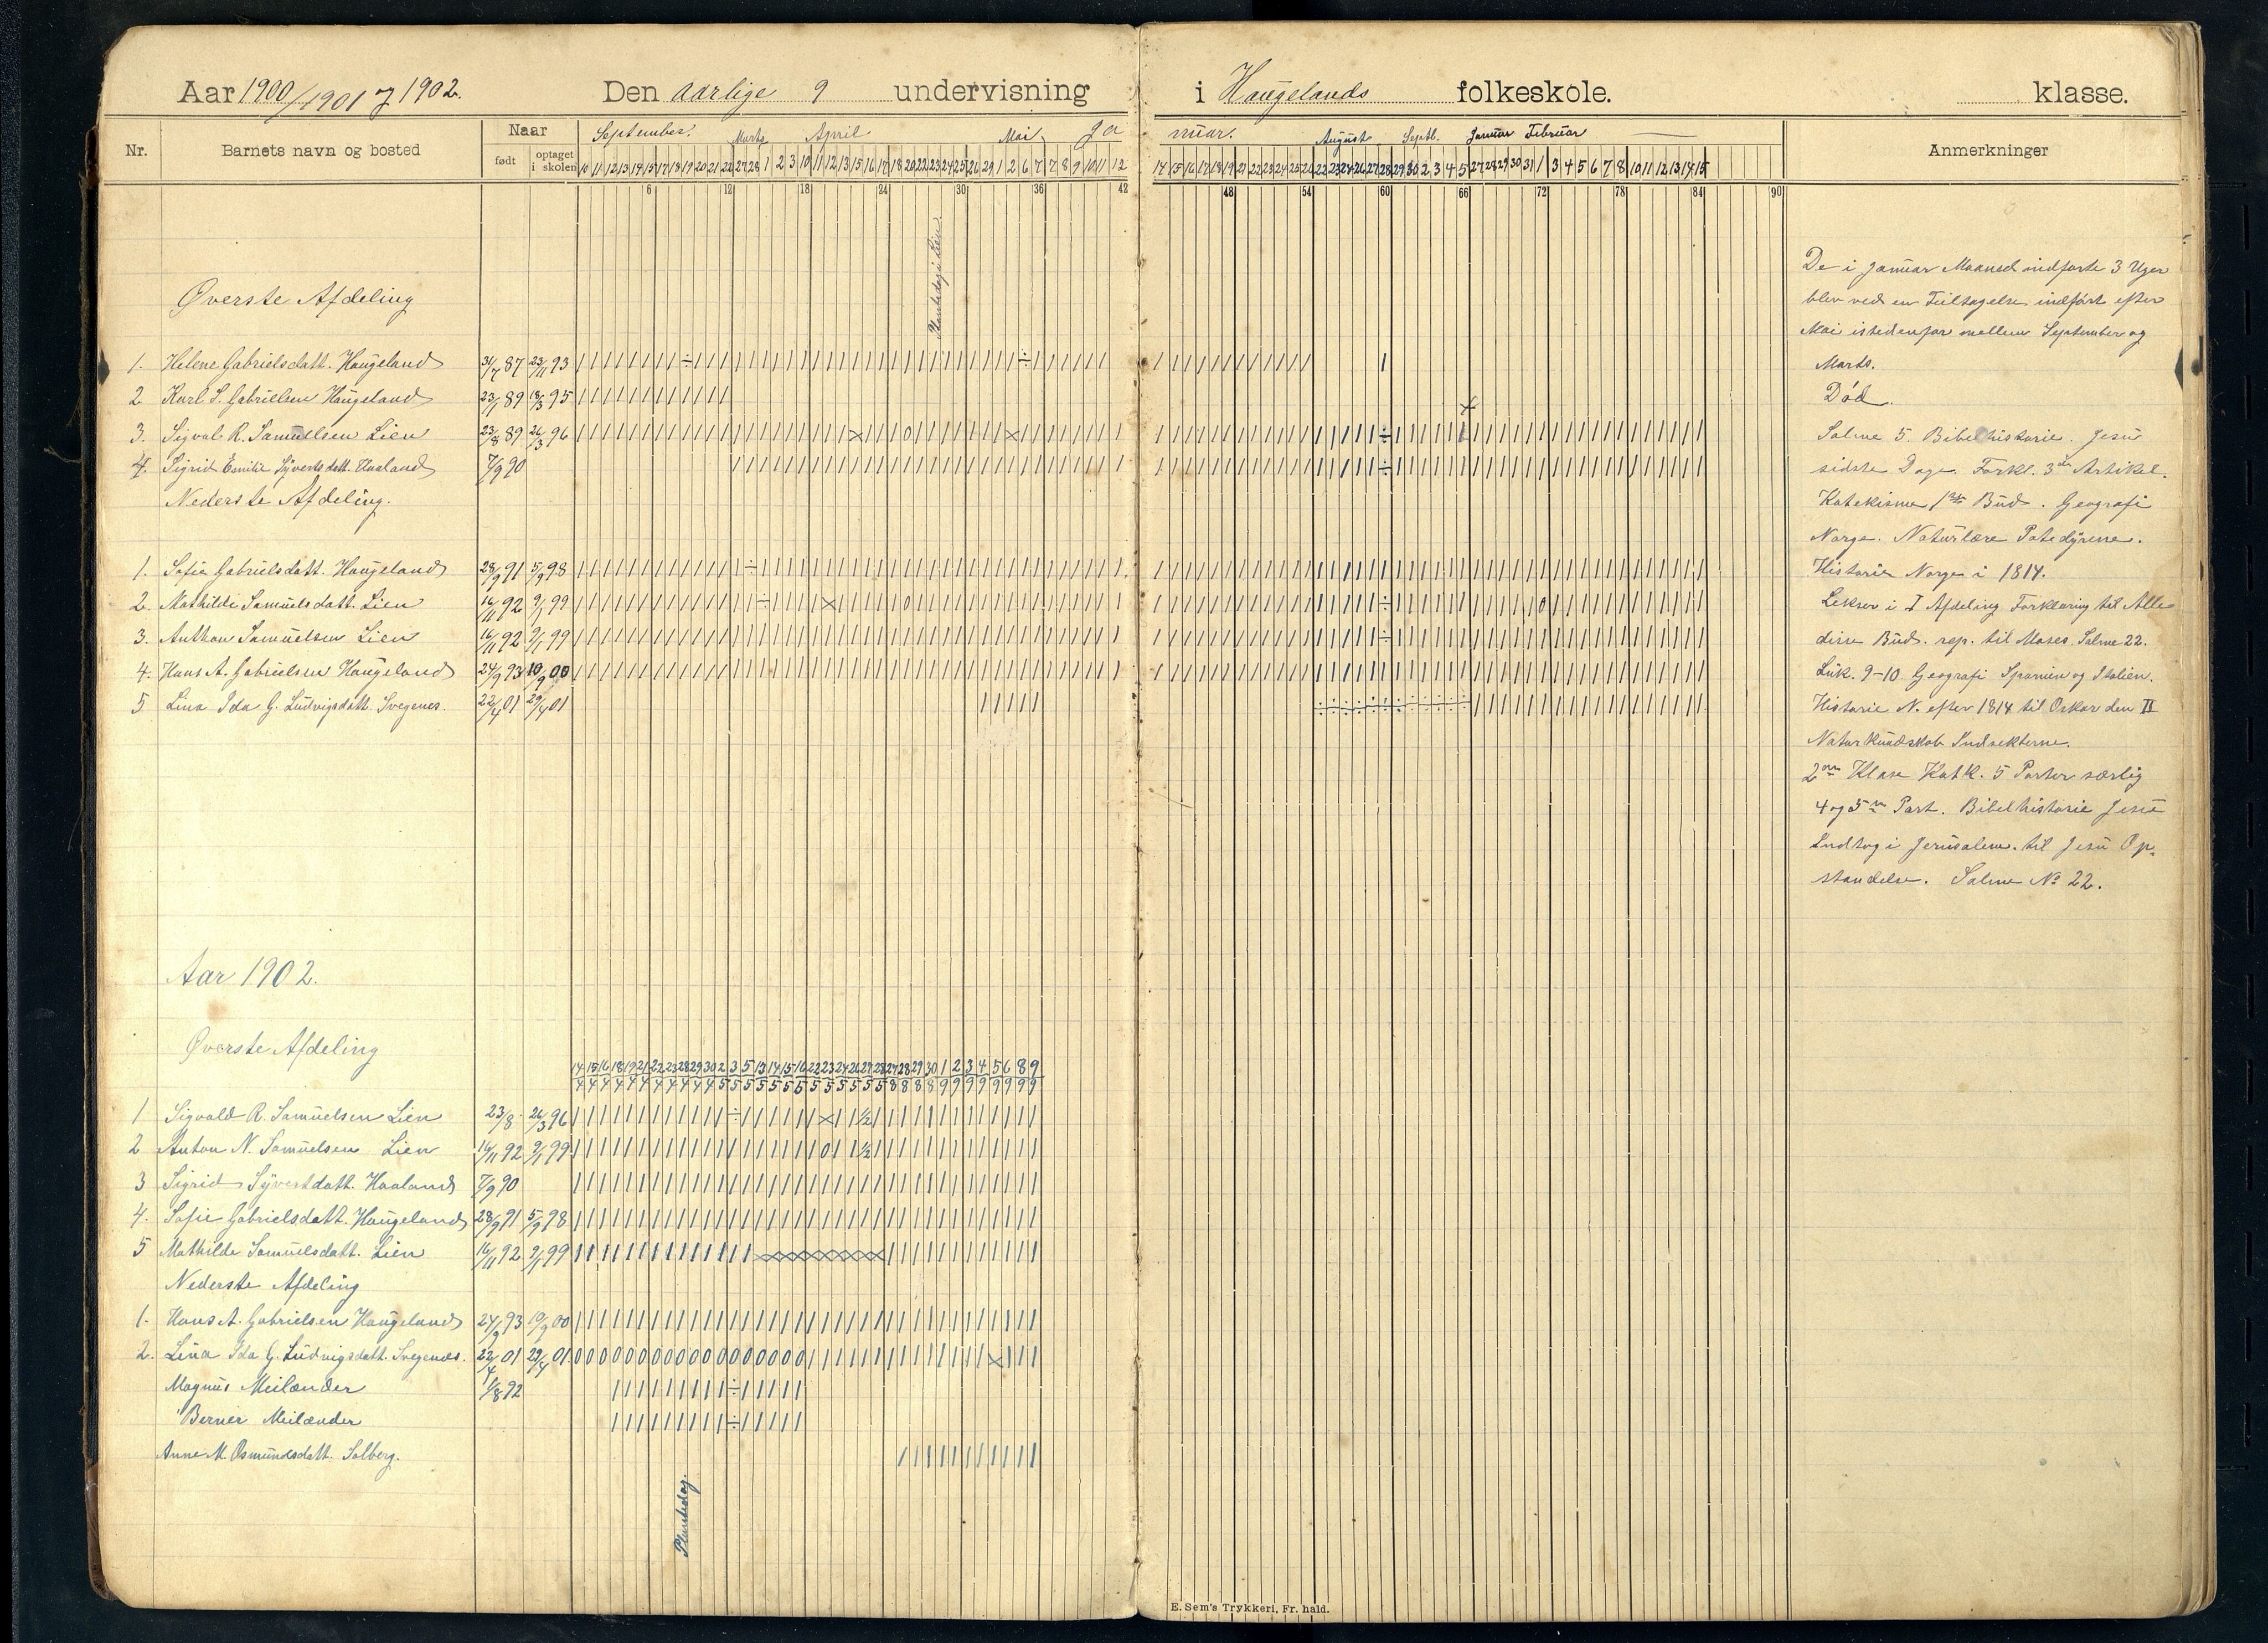 Aar 1900/1901 og 1902. Den aarlige 9 undervisning i Haugelands folkeskole. klasse.
Nr. Barnets navn og bosted Naar født optaget i skolen September. Marts April Mai Ja nuar. August Septb. Januar Februar Anmerkninger
10 11 12 13 14 15 17 18 19 20 21 22 27 28 1 2 3 10 11 12 13 15 16 17 18 20 22 23 24 25 26 29 1 2 6 7 7 8 9 10 11 12 14 15 16 17 18 19 21 22 23 24 25 26 22 23 24 26 27 28 29 30 2 3 4 5 27 28 29 30 31 1 3 4 5 6 7 8 10 11 12 13 14 15
6 12 18 24 30 36 42 48 54 60 66 72 78 84 90
Plantedag i Lien
Øverste Afdeling
1. Helene Gabrielsdatt. Haugeland 31/7 87 23/11 93
2 Karl S. Gabrielsen Haugeland 23/1 89 18/3 95
3. Sigval R. Samuelsen Lien 23/8 89 26/3 96
4. Sigrid Emilie Syvertsdatt. Haaland 7/9 90
Nederste Afdeling.
1. Sofie Gabrielsdatt. Haugeland 28/9 91 5/9 98
2. Mathilde Samuelsdatt. Lien 16/11 92 9/1 99
3. Anthon Samuelsen Lien 16/11 92 9/1 99
4. Hans A. Gabrielsen Haugeland 24/9 93 10/9 00
5 Lina Ida G. Ludvigsdatt. Svegenes. 22/4 01 29/4 01
De i Januar Maaned indførte 3 Uger
blev ved en Feiltagelse indført efter
Mai istedenfor mellem September og
Marts.
Død.
Salme 5. Bibelhistorie. Jesu
sidste Dage. Forkl. 3die Artikel.
Katekisme 1ste Bud. Geografi
Norge. Naturlære Patedyrene.
Historie Norge i 1814.
Lekser i I Afdeling Forklaring til Alle
disse Bud. rep. til Moses. Salme 22.
Luk. 9-10 Geografi Spanien og Italien.
Historie N. efter 1814 til Oskar den II
Naturkundskab Indsekterne.
2en Klase Katk. 5 Parter særlig
4 og 5te Part. Bibelhistorie Jesu
Indtog i Jerusalem. til Jesu Op-
standelse. Salme No 22.
Aar 1902.
Øverste Afdeling
14/4 15/4 16/4 18/4 19/4 21/4 22/4 23/4 28/4 29/4 30/4 2/5 3/5 5/5 13/5 14/5 15/5 16/5 22/5 23/5 24/5 26/5 27/5 28/5 27/8 28/8 29/8 30/8 1/9 2/9 3/9 4/9 5/9 6/9 8/9 9/9
1 Sigvald R. Samuelsen Lien 23/8 26/3 96
2 Anton N. Samuelsen Lien 16/11 92 9/1 99
3 Sigrid Syvertdatt. Haaland 7/9 90
4. Sofie Gabrielsdatt. Haugeland 28/9 91 5/9 98
5 Mathilde Samuelsdatt. Lien 16/11 92 9/1 99
Nederste Afdeling
1. Hans A. Gabrielsen Haugeland 24/9 93 10/9 00
2. Lina Ida G. Ludvigsdatt. Svegenes. 22/4 01 22/4 01
Magnus Meilænder 1/8 92
Berner Meilænder
Anne M. Osmundsdatt. Solberg.
Plantedag.
E. Sem's Trykkeri, Fr. hald.